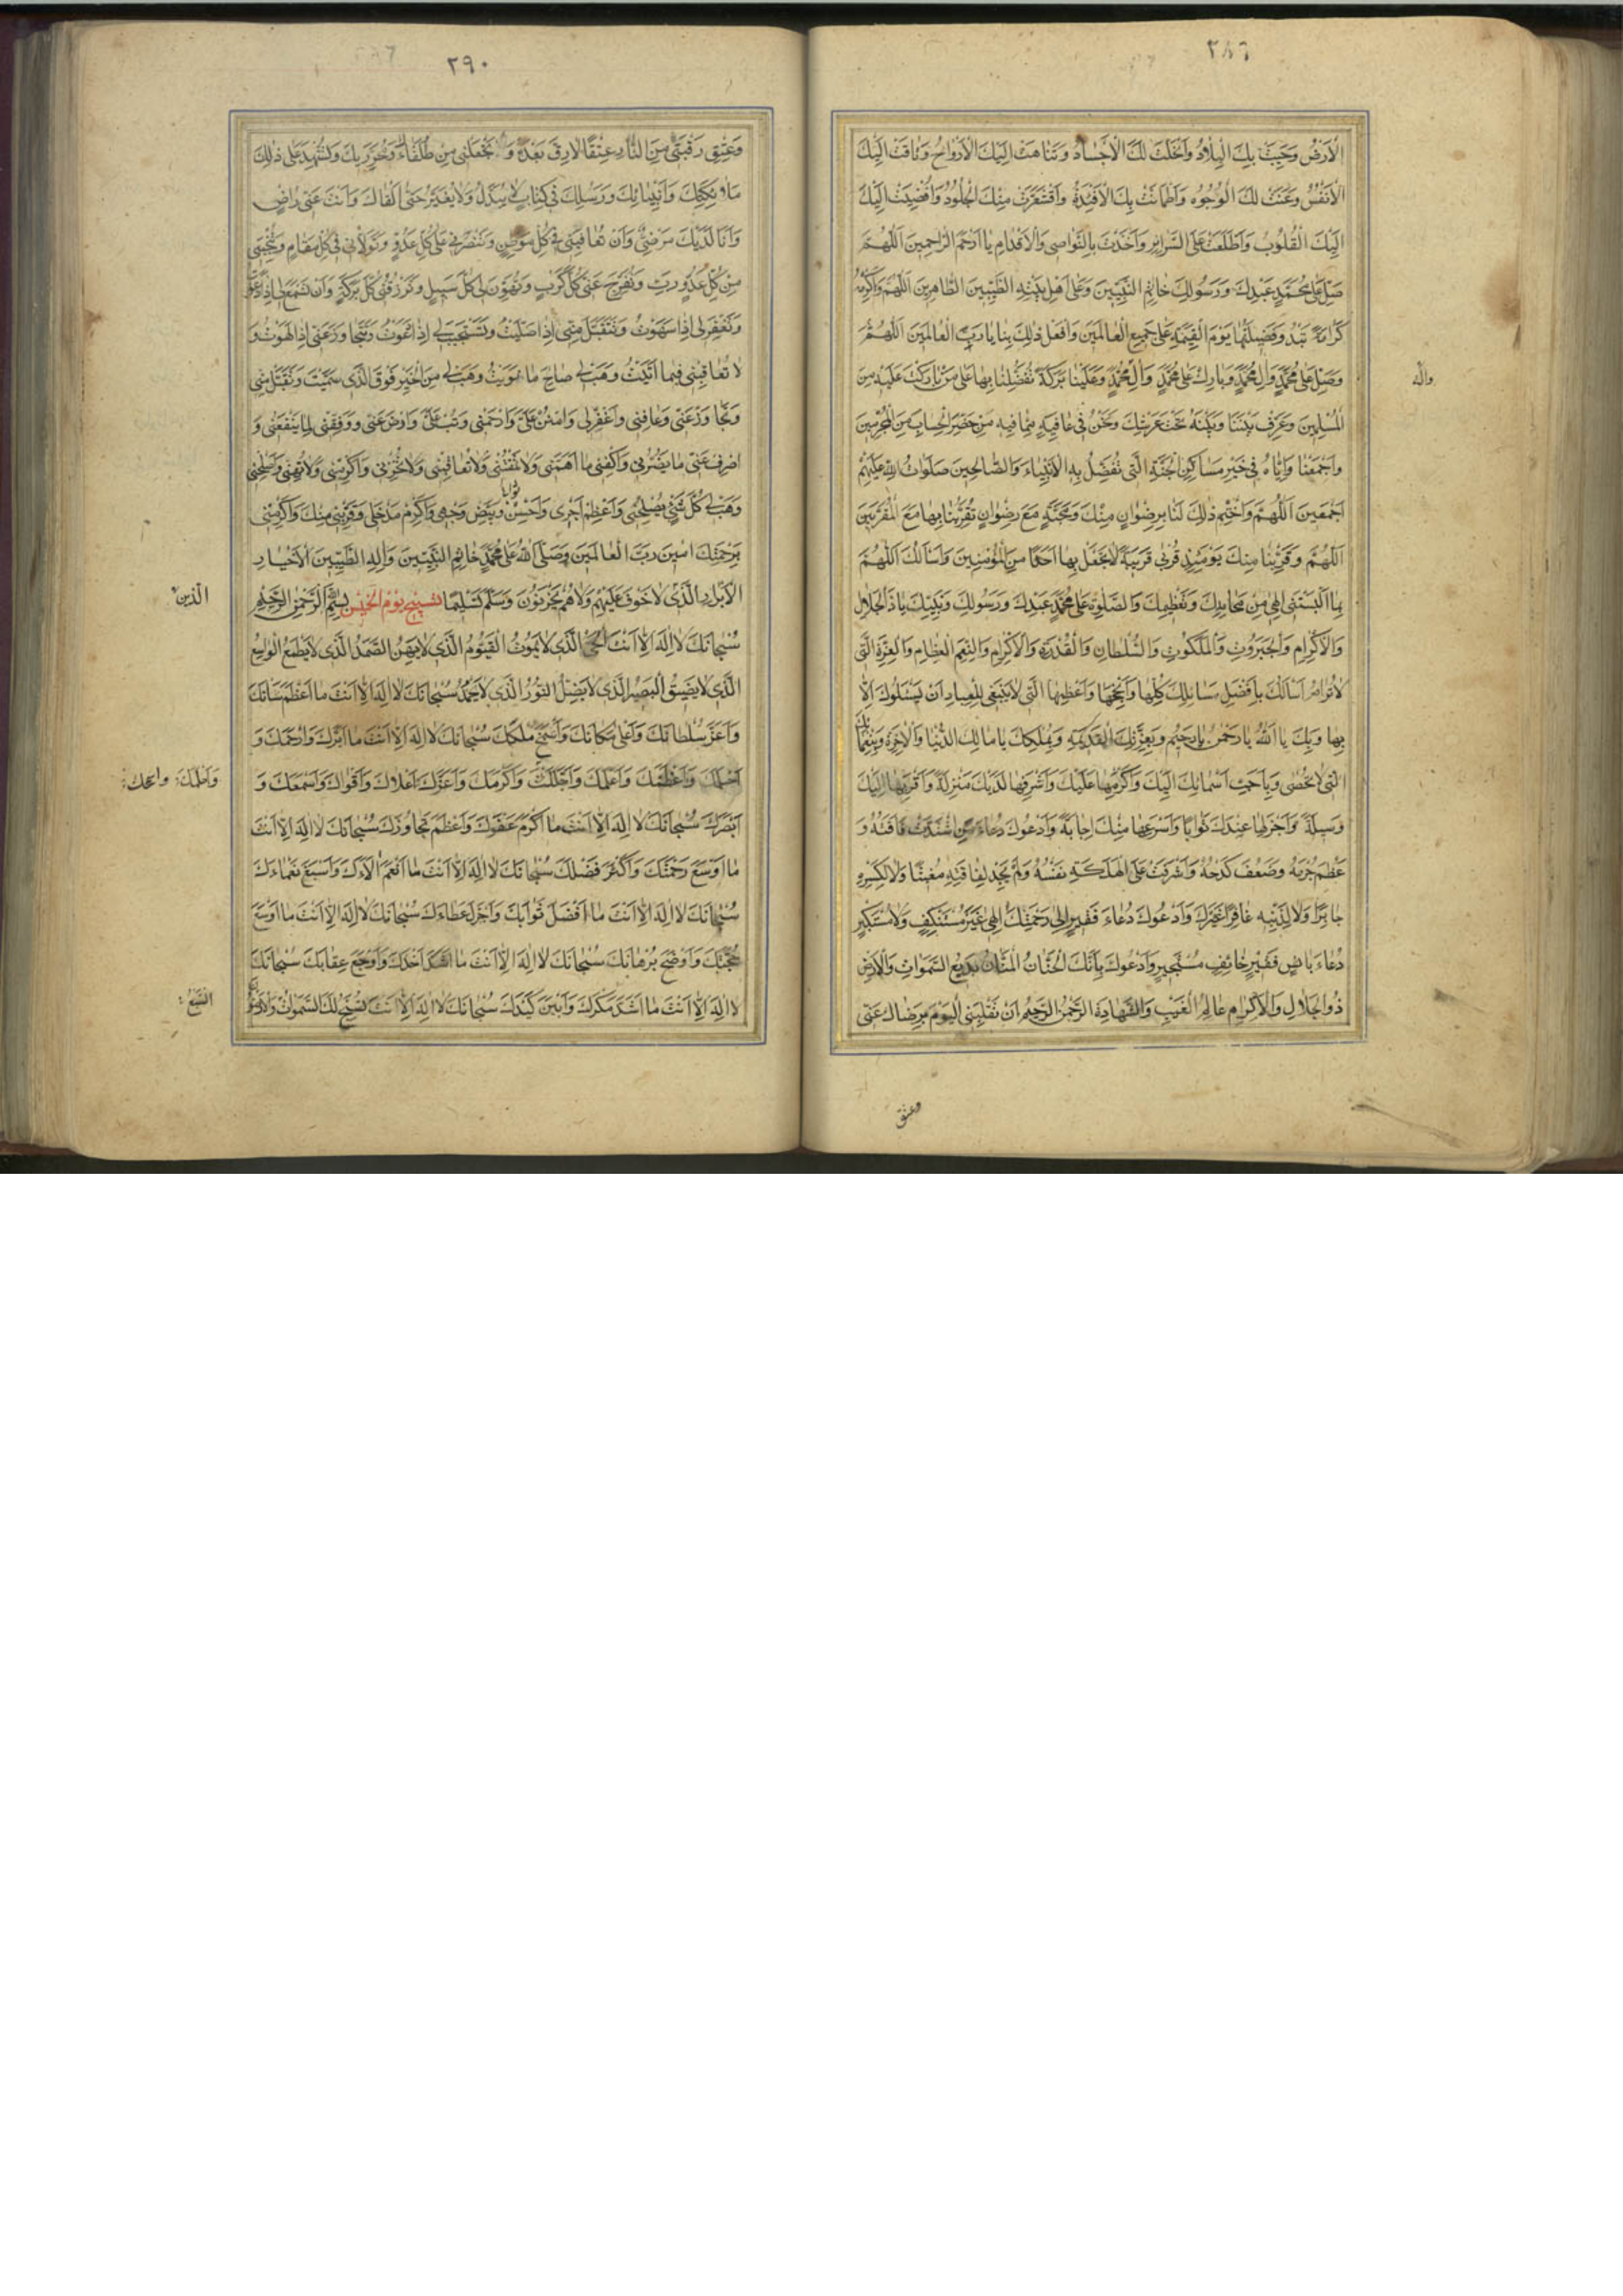 ٢٨٦
الْاَرْضُ وَحَيِيَتْ بِكَ الْبِلَادُ وَاَنْحَلَتْ لَكَ الْاَجْسَادُ وَتَنَاهَتْ اِلَيْكَ الْاَرْوَاحُ وَتَاقَتْ اِلَيْكَ
الْاَنْفُسُ وَعَنَتْ لَكَ الْوُجُوهُ وَاَطْمَاَنَّتْ بِكَ الْاَفْئِدَةُ وَاَقْشَعَرَّتْ مِنْكَ الْجُلُودُ وَاَفْضِيَتْ اِلَيْكَ
اِلَيْكَ الْقُلُوبُ وَاَطَّلَعْتَ عَلَى السَّرَائِرِ وَاَخَذْتَ بِالنَّوَاصِى وَالْاَقْدَامِ يَا اَرْحَمَ الرَّاحِمِينَ اَللّٰهُمَّ
صَلِّ عَلٰى مُحَمَّدٍ عَبْدِكَ وَرَسُولِكَ خَاتِمِ النَّبِيِّينَ وَعَلٰى اَهْلِ بَيْتِهِ الطَّيِّبِينَ الطَّاهِرِينَ اَللّٰهُمَّ وَاَكْرِمْهُ
كَرَامَةً تَبْدُو فَضِيلَتُهَا يَوْمَ الْقِيٰمَةِ عَلٰى جَمِيعِ الْعَالَمِينَ وَاَفْعَلْ ذٰلِكَ بِنَا يَا رَبَّ الْعَالَمِينَ اَللّٰهُمَّ
وَصَلِّ عَلٰى مُحَمَّدٍ وَاٰلِ مُحَمَّدٍ وَبَارِكْ عَلٰى مُحَمَّدٍ وَاٰلِ مُحَمَّدٍ وَعَلَيْنَا بَرَكَةً تُفَضِّلُنَا بِهَا عَلٰى مَنْ بَارَكْتَ عَلَيْهِ مِنَ
واٰله
الْمُسْلِمِينَ وَعَرِّفْ بَيْنَنَا وَبَيْنَهُ تَحْتَ عَرْشِكَ وَنَحْنُ فِى عَافِيَةٍ مِمَّا فِيهِ مَنْ حَضَرَ الْحِسَابَ مِنَ الْمُجْرِمِينَ
وَاجْمَعْنَا وَاِيَّاهُ فِى خَيْرِ مَسَاكِنِ الْجَنَّةِ الَّتِى تُفَضِّلُ بِهِ الْاَنْبِيَاءَ وَالصَّالِحِينَ صَلَوَاتُ اللّٰهِ عَلَيْهِمْ
اَجْمَعِينَ اَللّٰهُمَّ وَاخْتِمْ ذٰلِكَ لَنَا بِرِضْوَانٍ مِنْكَ وَمَحَبَّةٍ مَعَ رِضْوَانٍ تُقَرِّبُنَا بِهَا مَعَ الْمُقَرَّبِينَ
اَللّٰهُمَّ وَقَرِّبْنَا مِنْكَ يَوْمَئِذٍ قُرْبٰى قَرِيبَةً لَا تَجْعَلْ بِهَا اَحَدًا مِنَ الْمُؤْمِنِينَ وَاَسْاَلُكَ اَللّٰهُمَّ
بِمَا اَلْبَسْتَنِى اِلٰهِى مِنْ مَحَامِدِكَ وَتَعْظِيمِكَ وَالصَّلٰوةِ عَلٰى مُحَمَّدٍ عَبْدِكَ وَرَسُولِكَ وَنَبِيِّكَ يَا ذَا الْجَلَالِ
وَالْاِكْرَامِ وَالْجَبَرُوتِ وَالْمَلَكُوتِ وَالسُّلْطَانِ وَالْقُدْرَةِ وَالْاِكْرَامِ وَالنِّعَمِ الْعِظَامِ وَالْعِزَّةِ الَّتِى
لَا تُرَامُ اَسْاَلُكَ بِاَفْضَلِ مَسَائِلِكَ كُلِّهَا وَاَنْجَحِهَا وَاَعْظَمِهَا الَّتِى لَا يَنْبَغِى لِلْعِبَادِ اَنْ يَسْئَلُوكَ اِلَّا
بِهَا وَبِكَ يَا اَللّٰهُ يَا رَحْمٰنُ يَا رَحِيمُ وَبِعِزَّتِكَ الْقَدِيمَةِ وَبِمُلْكِكَ يَا مَالِكَ الدُّنْيَا وَالْاٰخِرَةِ وَبِنَعْمَائِكَ
الَّتِى لَا تُحْصٰى وَبِاَحَبِّ اَسْمَائِكَ اِلَيْكَ وَاَكْرَمِهَا عَلَيْكَ وَاَشْرَفِهَا لَدَيْكَ مَنْزِلَةً وَاَقْرَبِهَا اِلَيْكَ
وَسِيلَةً وَاَجْزَلِهَا عِنْدَكَ ثَوَابًا وَاَسْرَعِهَا مِنْكَ اِجَابَةً وَاَدْعُوكَ دُعَاءَ مَنِ اشْتَدَّتْ فَاقَتُهُ وَ
عَظُمَ جُرْمُهُ وَضَعُفَ كَدْحُهُ وَاَشْرَفَتْ عَلَى الْهَلَكَةِ نَفْسُهُ وَلَمْ يَجِدْ لِفَاقَتِهِ مُغِيثًا وَلَا لِكَسْرِهِ
جَابِرًا وَلَا لِذَنْبِهِ غَافِرًا غَيْرَكَ وَاَدْعُوكَ دُعَاءَ فَقِيرٍ اِلٰى رَحْمَتِكَ اِلٰهِى غَيْرَ مُسْتَنْكِفٍ وَلَا مُسْتَكْبِرٍ
دُعَاءَ بَائِسٍ فَقِيرٍ خَائِفٍ مُسْتَجِيرٍ وَاَدْعُوكَ بِاَنَّكَ الْحَنَّانُ الْمَنَّانُ بَدِيعُ السَّمٰوَاتِ وَالْاَرْضِ
ذُو الْجَلَالِ وَالْاِكْرَامِ عَالِمُ الْغَيْبِ وَالشَّهَادَةِ الرَّحْمٰنُ الرَّحِيمُ اَنْ تَقْلِبَنِى الْيَوْمَ بِرِضَاكَ عَنِّى
وعتق
٢٩٠
وَعِتْقِ رَقَبَتِى مِنَ النَّارِ عِتْقًا لَا رِقَّ بَعْدَهُ وَتَجْعَلَنِى مِنْ طُلَقَاءِكَ وَمُحَرَّرِيكَ وَتُشْهِدَ عَلٰى ذٰلِكَ
مَلٰئِكَتَكَ وَاَنْبِيَائَكَ وَرُسُلَكَ فِى كِتَابٍ لَا يُبَدَّلُ وَلَا يُغَيَّرُ حَتّٰى اَلْقَاكَ وَاَنْتَ عَنِّى رَاضٍ
وَاَنَا لَدَيْكَ مَرْضِىٌّ وَاَنْ تُعَافِيَنِى فِى كُلِّ مَوْطِنٍ وَتَنْصُرَنِى عَلٰى كُلِّ عَدُوٍّ وَتَوَلَّانِى فِى كُلِّ مَقَامٍ وَتُنْجِيَنِى
مِنْ كُلِّ عَدُوٍّ رَبِّ وَتُفَرِّجَ عَنِّى كُلَّ كَرْبٍ وَتُهَوِّنَ لِى كُلَّ سَبِيلٍ وَتَرْزُقَنِى كُلَّ بَرَكَةٍ وَاَنْ تَسْمَعَ لِى اِذَا دَعَوْتُ
وَتَغْفِرَ لِى اِذَا سَهَوْتُ وَتَتَقَبَّلَ مِنِّى اِذَا صَلَّيْتُ وَتَسْتَجِيبَ لِى اِذَا دَعَوْتُ وَتَتَجَاوَزَ عَنِّى اِذَا لَهَوْتُ وَ
لَا تُعَاقِبْنِى فِيمَا اَتَيْتُ وَهَبْ لِى صَالِحَ مَا نَوَيْتُ وَهَبْ لِى مِنَ الْخَيْرِ فَوْقَ الَّذِى سَمَّيْتُ وَتَقَبَّلْ مِنِّى
وَتَجَاوَزْ عَنِّى وَعَافِنِى وَاغْفِرْ لِى وَامْنُنْ عَلَىَّ وَارْحَمْنِى وَتُبْ عَلَىَّ وَارْضَ عَنِّى وَوَفِّقْنِى لِمَا يَنْفَعُنِى وَ
اصْرِفْ عَنِّى مَا يَضُرُّنِى وَاكْفِنِى مَا اَهَمَّنِى وَلَا تَمْقُتْنِى وَلَا تُعَاقِبْنِى وَلَا تُخْزِنِى وَاَكْرِمْنِى وَلَا تُهِنِّى وَاَصْلِحْنِى
وَهَبْ لِى كُلَّ شَىْءٍ يُصْلِحُنِى وَاَعْظِمْ اَجْرِى وَاَحْسِنْ ثَوَابِى وَبَيِّضْ وَجْهِى وَاَكْرِمْ مَدْخَلِى وَقَرِّبْنِى مِنْكَ وَاَكْرِمْنِى
بِرَحْمَتِكَ اٰمِينَ رَبَّ الْعَالَمِينَ وَصَلَّى اللّٰهُ عَلٰى مُحَمَّدٍ خَاتِمِ النَّبِيِّينَ وَاٰلِهِ الطَّيِّبِينَ الْاَخْيَارِ
الْاَبْرَارِ الَّذِى لَا خَوْفٌ عَلَيْهِمْ وَلَا هُمْ يَحْزَنُونَ وَسَلَّمَ تَسْلِيمًا تسبيح يوم الخميس بِسْمِ اللّٰهِ الرَّحْمٰنِ الرَّحِيمِ
الّذين
سُبْحَانَكَ لَا اِلٰهَ اِلَّا اَنْتَ الْحَىُّ الَّذِى لَا يَمُوتُ الْقَيُّومُ الَّذِى لَا يَهِنُ الصَّمَدُ الَّذِى لَا يَطْعَمُ الْوَاسِعُ
الَّذِى لَا يَضِيقُ الْبَصِيرُ الَّذِى لَا يَضِلُّ النُّورُ الَّذِى لَا يَخْمَدُ سُبْحَانَكَ لَا اِلٰهَ اِلَّا اَنْتَ مَا اَعْظَمَ شَانَكَ
وَاَعَزَّ سُلْطَانَكَ وَاَعْلٰى مَكَانَكَ وَاَشْمَخَ مُلْكَكَ سُبْحَانَكَ لَا اِلٰهَ اِلَّا اَنْتَ مَا اَبَرَّكَ وَاَرْحَمَكَ وَ
اَحْلَمَكَ وَاَعْظَمَكَ وَاَعْلَمَكَ وَاَجَلَّكَ وَاَكْرَمَكَ وَاَعَزَّكَ اَعْلَاكَ وَاَقْوَاكَ وَاَسْمَعَكَ وَ
اَبْصَرَكَ سُبْحَانَكَ لَا اِلٰهَ اِلَّا اَنْتَ مَا اَكْرَمَ عَفْوَكَ وَاَعْظَمَ تَجَاوُزَكَ سُبْحَانَكَ لَا اِلٰهَ اِلَّا اَنْتَ
مَا اَوْسَعَ رَحْمَتَكَ وَاَكْثَرَ فَضْلَكَ سُبْحَانَكَ لَا اِلٰهَ اِلَّا اَنْتَ مَا اَنْعَمَ اٰلَاءَكَ وَاَسْبَغَ نَعْمَاءَكَ
سُبْحَانَكَ لَا اِلٰهَ اِلَّا اَنْتَ مَا اَفْضَلَ ثَوَابَكَ وَاَجْزَلَ عَطَاءَكَ سُبْحَانَكَ لَا اِلٰهَ اِلَّا اَنْتَ مَا اَوْسَعَ
حُجَّتَكَ وَاَوْضَحَ بُرْهَانَكَ سُبْحَانَكَ لَا اِلٰهَ اِلَّا اَنْتَ مَا اَشَدَّ اَخْذَكَ وَاَوْجَعَ عِقَابَكَ سُبْحَانَكَ
لَا اِلٰهَ اِلَّا اَنْتَ مَا اَشَدَّ مَكْرَكَ وَاَبْيَنَ كَيْدَكَ سُبْحَانَكَ لَا اِلٰهَ اِلَّا اَنْتَ تُسَبِّحُ لَكَ السَّمٰوَاتُ وَالْاَرَضُونَ
السَّبْعُ